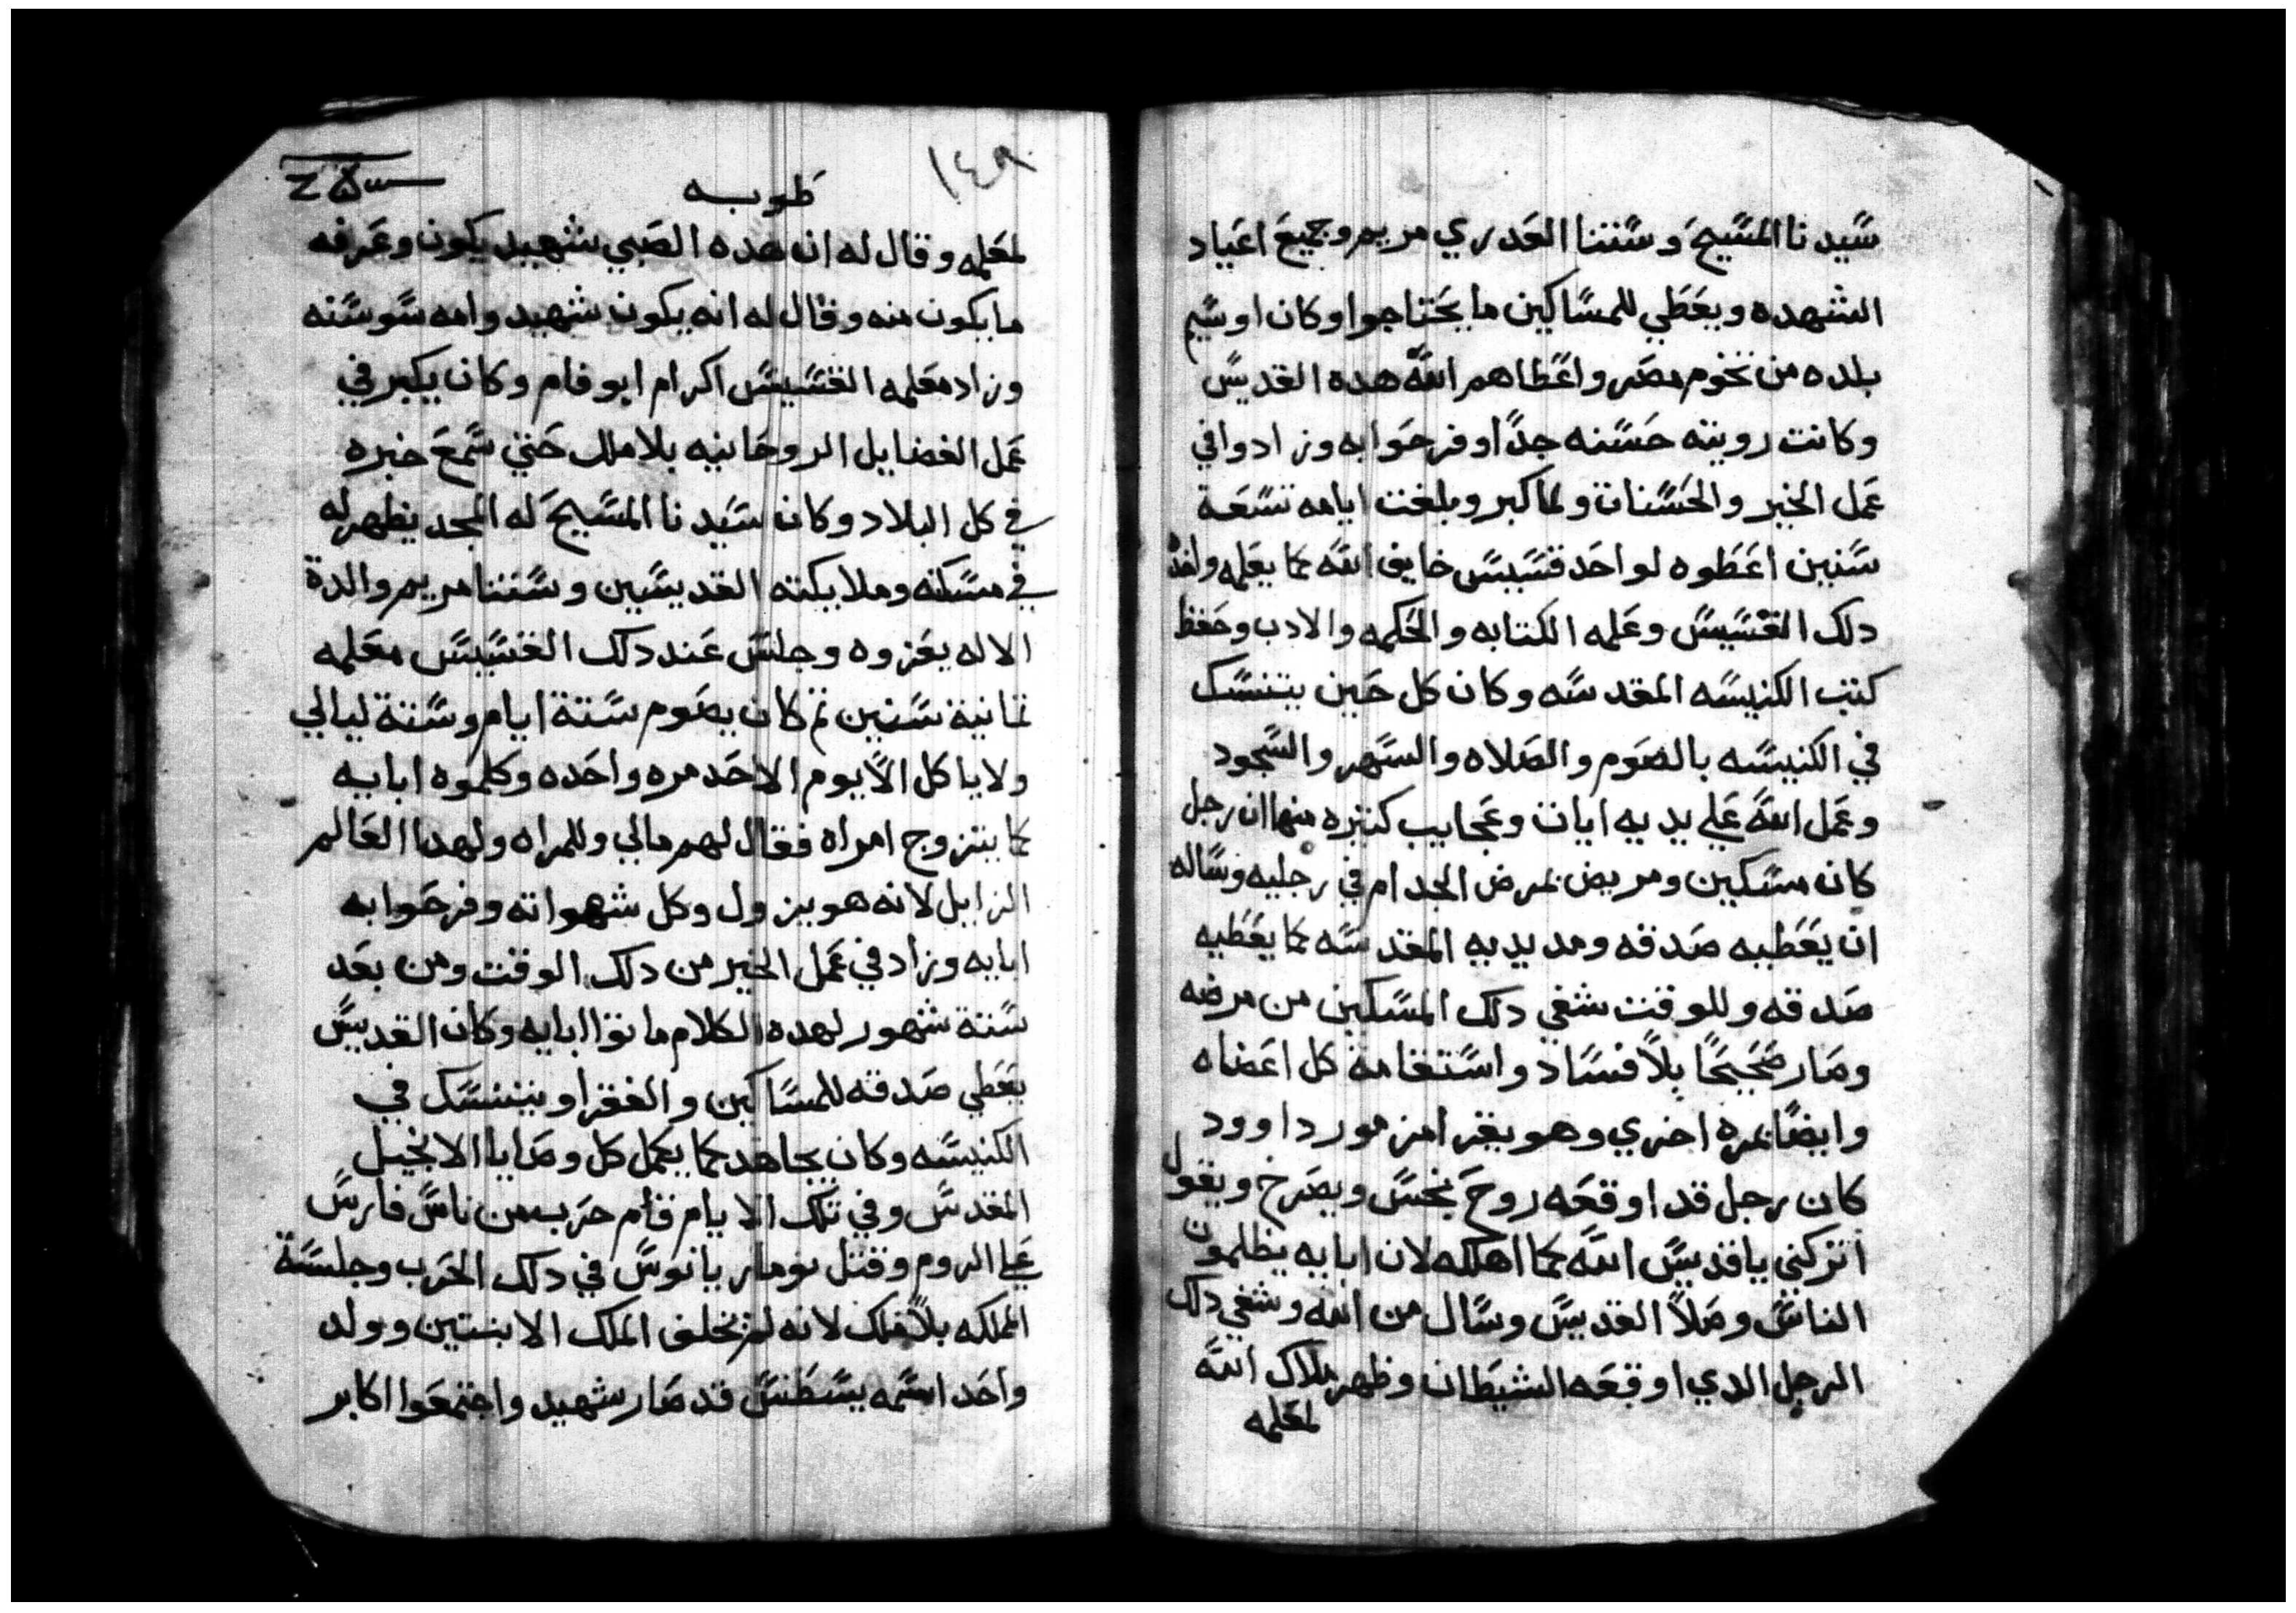 سيدنا المسيح وستنا العدري مريم وجميع اعياد
الشهده ويعطي للمساكين ما يحتاجوا وكان اوسيم
بلده من تخوم مصر واعطاهم الله هده القديس
وكانت رويته حسنه جدًا وفرحوا به وزادوا في
عمل الخير والحسنات ولما كبر وبلغت ايامه تسعة
سنين اعطوه لواحد قسيس خايف الله كما يعلمه واخد
دلك القسيس وعلمه الكتابه والحكمه والادب وحفظ
كتب الكنيسه المقدسه وكان كل حين يتنسك
في الكنيسه بالصوم والصلاه والسهر والسجود
وعمل الله علي يديه ايات وعجايب كتيره منها ان رجل
كان مسكين ومريض بمرض الجدام في رجليه وساله
ان يعطيه صدقه ومد يديه المقدسه كما يعطيه
صدقه وللوقت شفي دلك المسكين من مرضه
وصار صحيحًا بلا فساد واستقامة كل اعضاه
وايضًا بمره اخري وهو يقرا مزمور داوود
كان رجل قد اوقعه روح نجس ويصرخ ويقول
اتركني يا قديس الله كما اهلكه لان ابايه يظلمون
الناس وصلا القديس وسال من الله وشفي دلك
الرجل الدي اوقعه الشيطان وظهر ملاك الله
لمعلمه
١٤٩
طوبه
لمعلمه وقال له ان هده الصبي شهيد يكون وعرفه
ما يكون منه وقال له انه يكون شهيد وامه سوسنه
وزاد معلمه القسيس اكرام ابو فام وكان يكبر في
عمل الفضايل الروحانيه بلا ملل حتي سمع خبره
في كل البلاد وكان سيدنا المسيح له المجد يظهر له
في مسكنه وملايكته القديسين وستنا مريم والدة
الاله يعزوه وجلس عند دلك القسيس معلمه
تمانية سنين تم كان يصوم ستة ايام وستة ليالي
ولا ياكل الا يوم الاحد مره واحده وكلموه ابايه
كما يتزوج امراه فقال لهم مالي وللمراه ولهدا العالم
الزايل لانه هو يزول وكل شهواته وفرحوا به
ابايه وزاد في عمل الخير من دلك الوقت ومن بعد
ستة شهور لهده الكلام ماتوا ابايه وكان القديس
يعطي صدقه للمساكين والفقرا ويتنسك في
الكنيسه وكان يجاهد كما يكمل كل وصايا الانجيل
المقدس وفي تلك الايام قام حرب من ناس فارس
علي الروم وقتل نوماريانوس في دلك الحرب وجلسة
المملكه بلا ملك لانه لم يخلف الملك الا بنتين وولد
واحد اسمه يسطس قد صار شهيد واجتمعوا اكابر